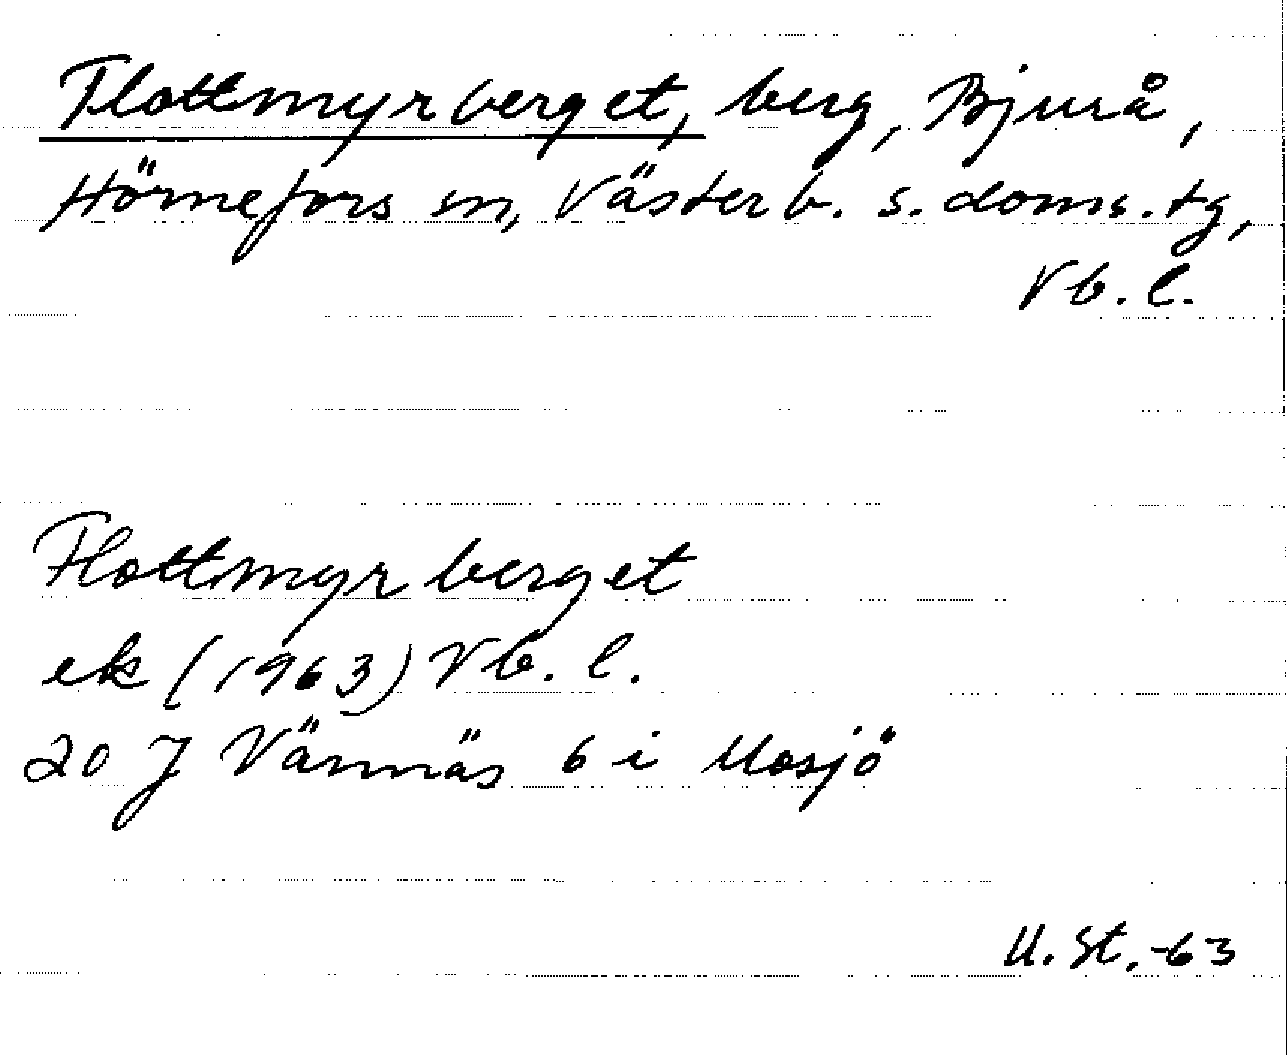 Flottmyrberget, berg, Bjurå,
Hörnefors sn, Västerb. s. doms. tg,
Vb. l.
Flottmyrberget
ek (1963) Vb. l.
20 J Vännäs 6 i Mosjö
U. St. -63